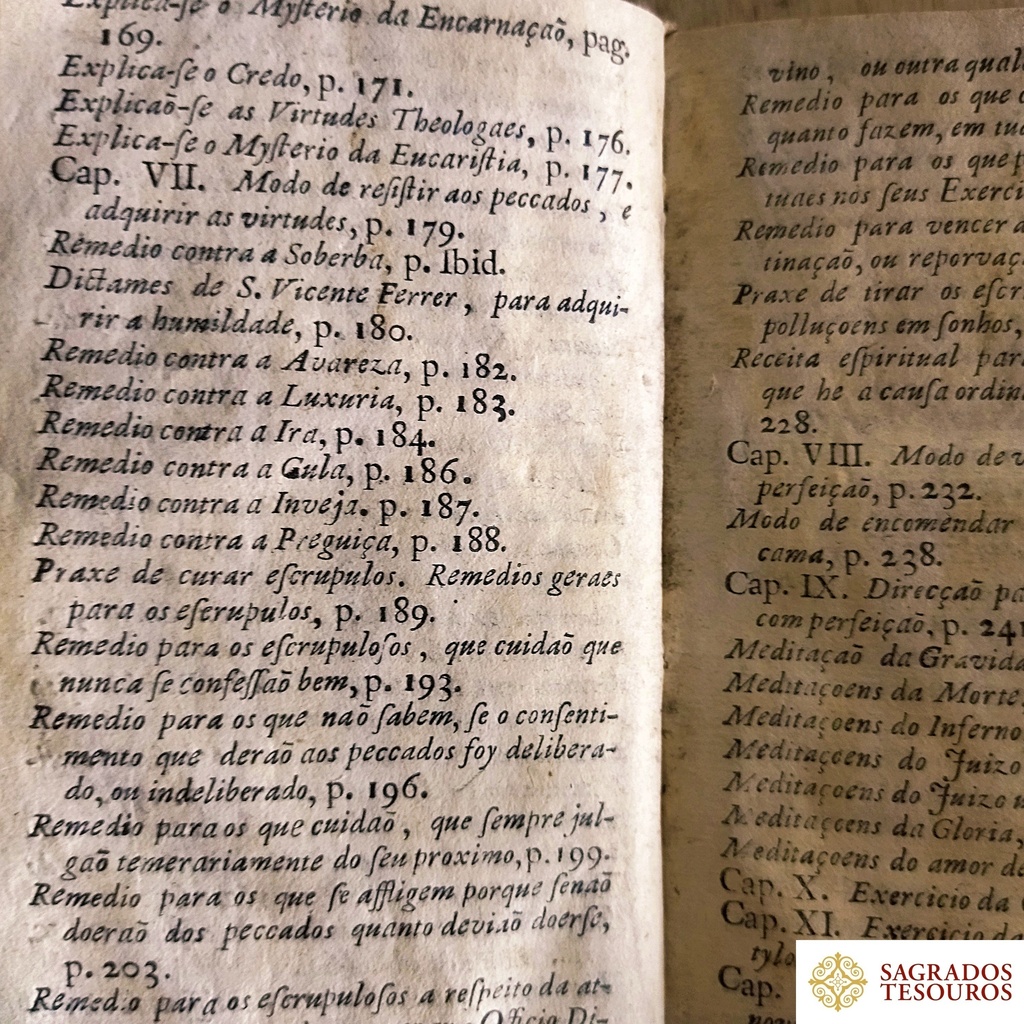 Explica-ſe o Myſterio da Encarnaçaõ, pag.
169.
Explica-ſe o Credo, p. 171.
Explicaõ-ſe as Virtudes Theologaes, p. 176.
Explica-ſe o Myſterio da Eucariſtia, p. 177.
Cap. VII. Modo de reſiſtir aos peccados, e
adquirir as virtudes, p. 179.
Remedio contra a Soberba, p. Ibid.
Dictames de S. Vicente Ferrer, para adqui-
rir a humildade, p. 180.
Remedio contra a Avareza, p. 182.
Remedio contra a Luxuria, p. 183.
Remedio contra a Ira, p. 184.
Remedio contra a Gula, p. 186.
Remedio contra a Inveja. p. 187.
Remedio contra a Preguiça, p. 188.
Praxe de curar eſcrupulos. Remedios geraes
para os eſcrupulos, p. 189.
Remedio para os eſcrupuloſos, que cuidaõ que
nunca ſe confeſſaõ bem, p. 193.
Remedio para os que naõ ſabem, ſe o conſenti-
mento que deraõ aos peccados foy delibera-
do, ou indeliberado, p. 196.
Remedio para os que cuidaõ, que ſempre jul-
gaõ temerariamente do ſeu proximo, p. 199.
Remedio para os que ſe affligem porque ſenaõ
doeraõ dos peccados quanto deviaõ doerſe,
p. 203.
Remedio para os eſcrupuloſos a reſpeito da at-
Officio Di-
vino, ou outra qual
Remedio para os que
quanto fazem, em
Remedio para os que
tuaes nos ſeus Exerci
Remedio para vencer a
tinaçaõ, ou reporvaç
Praxe de tirar os eſcr
polluçoens em ſonhos,
Receita eſpiritual para
que he a cauſa ordin
228.
Cap. VIII. Modo de
perfeiçaõ, p. 232.
Modo de encomendar
cama, p. 238.
Cap. IX. Direcçaõ pa
com perfeiçaõ, p. 241
Meditaçaõ da Gravida
Meditaçoens da Morte
Meditaçoens do Inferno
Meditaçoens do Juizo
Meditaçoens do Juizo u
Meditaçoens da Gloria,
Meditaçoens do amor de
Cap. X. Exercicio da
Cap. XI. Exercicio da
tylo
Cap.
SAGRADOS
TESOUROS